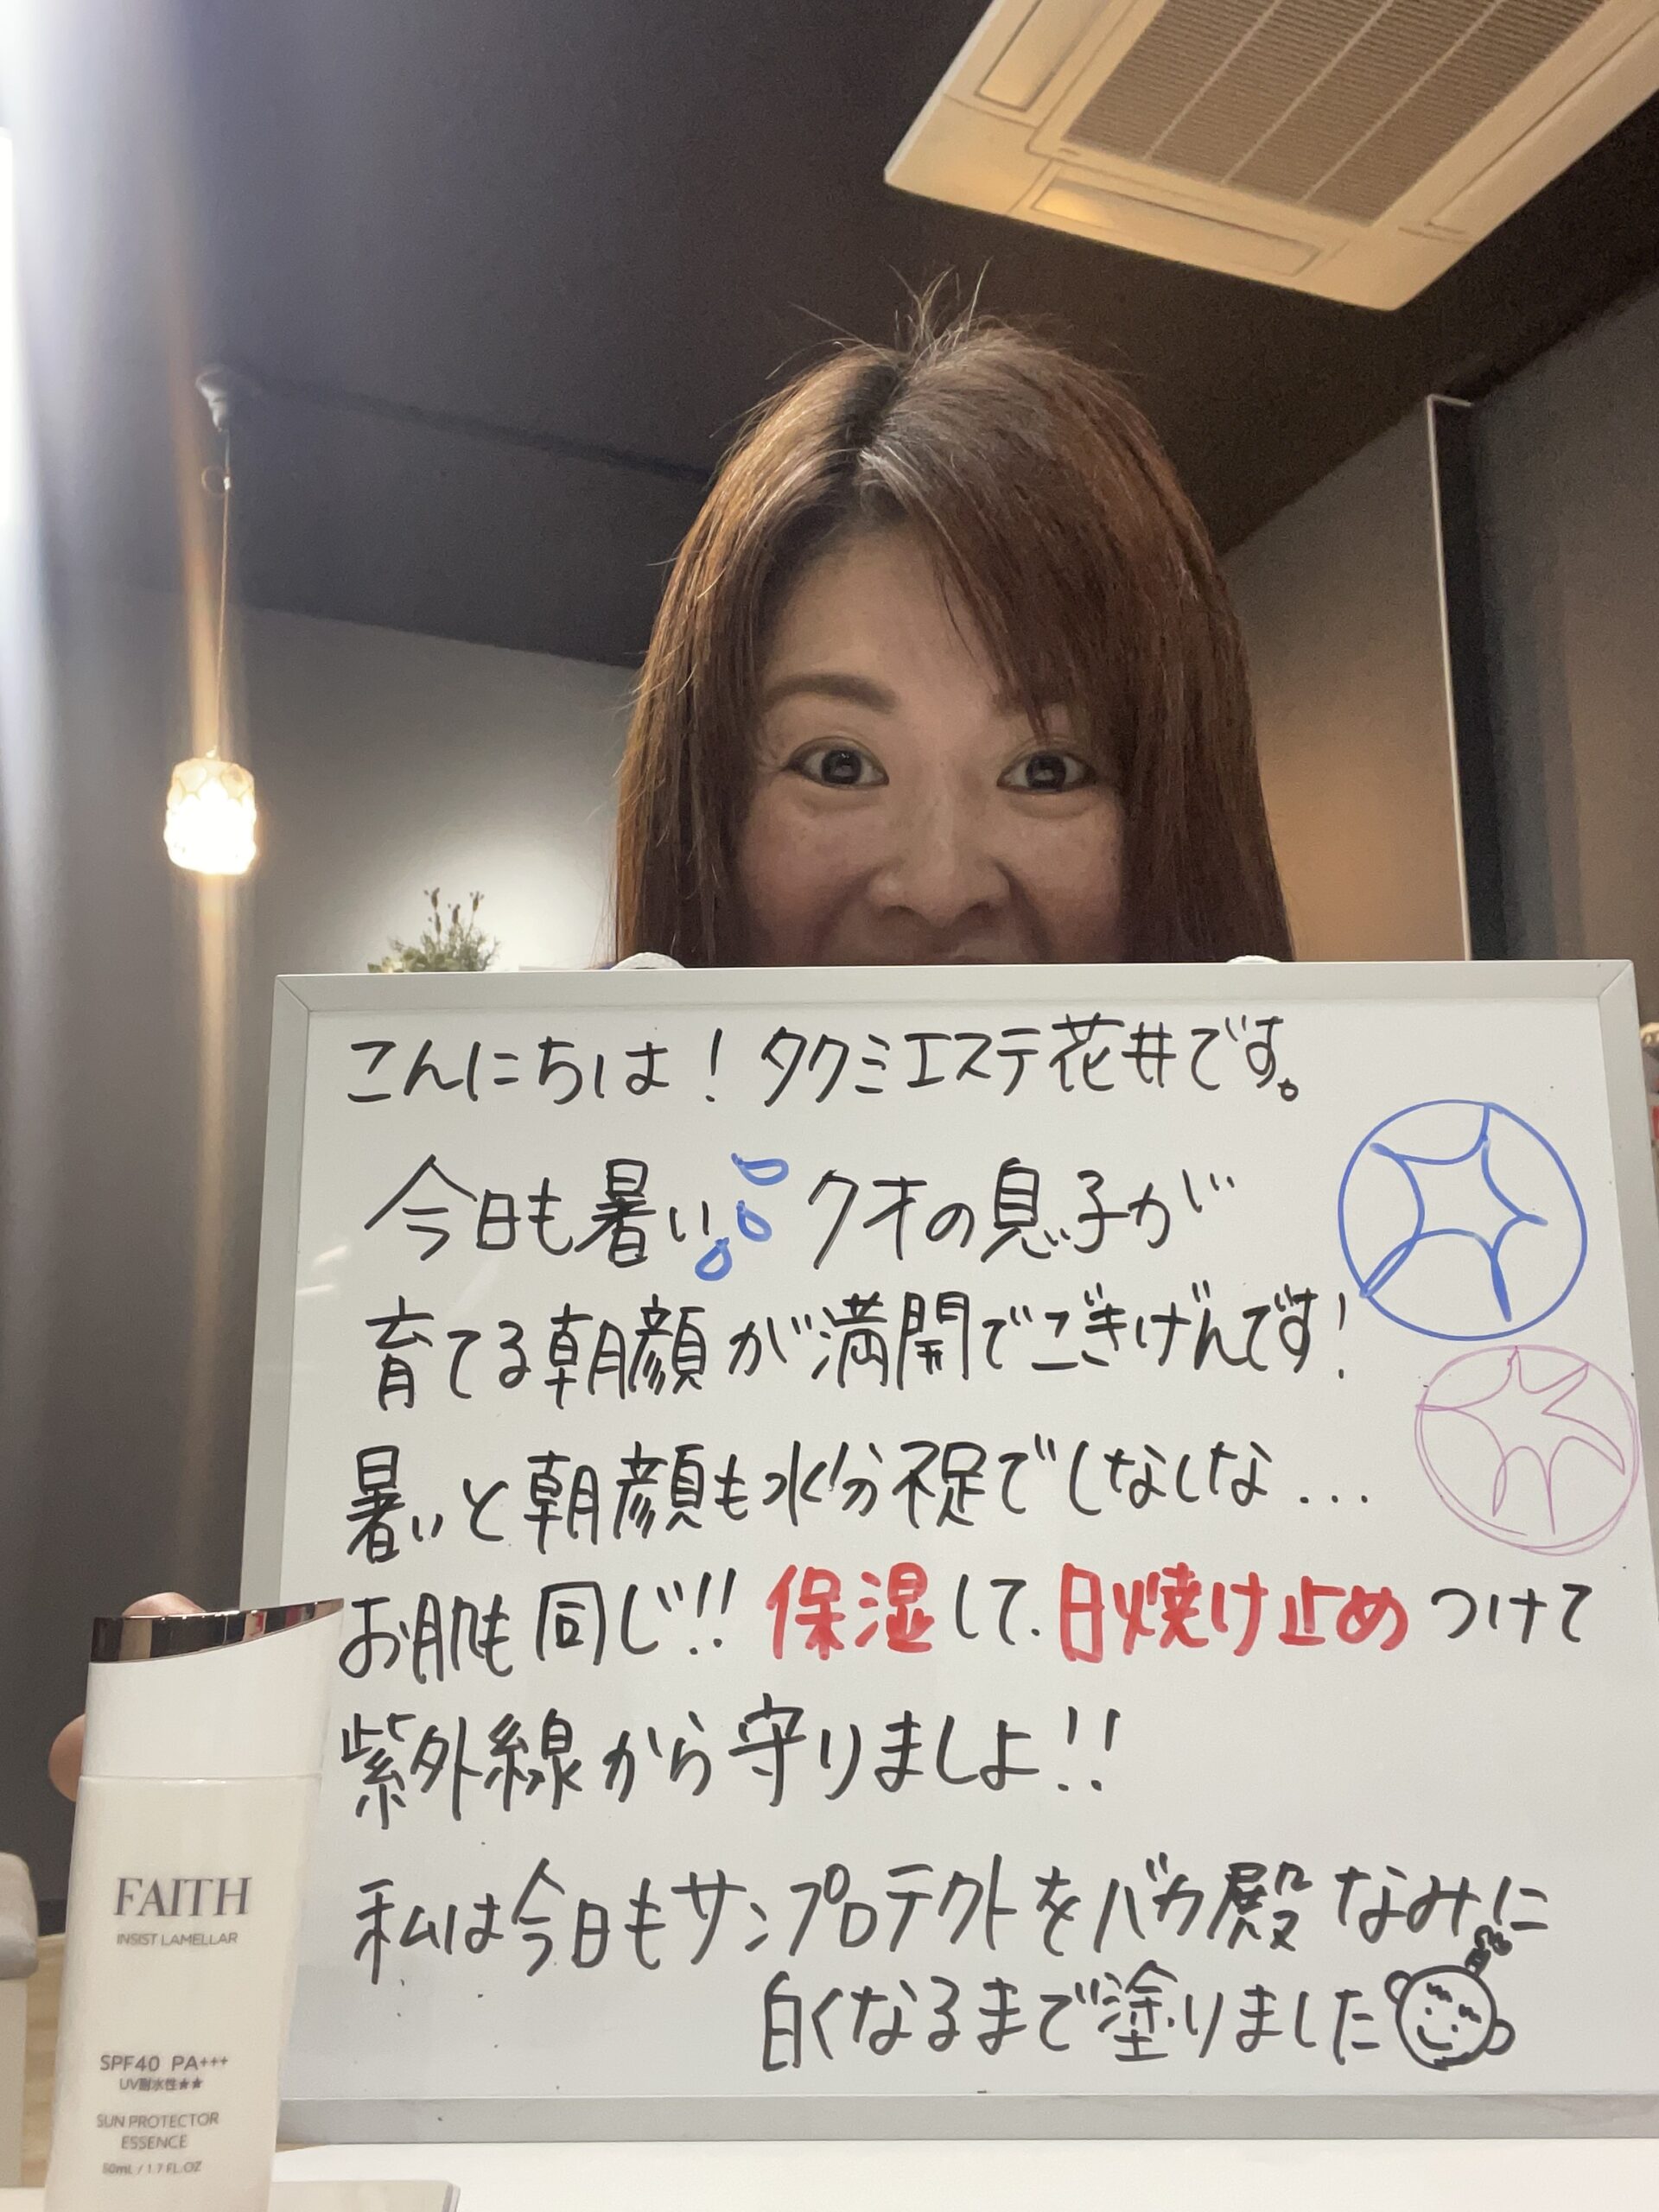 こんにちは！タクミエステ花井です。
今日も暑い クオの息子が
育てる朝顔が満開でごきげんです！
暑いと朝顔も水分不足でしなしな...
お肌も同じ!! 保湿して、日焼け止めつけて
紫外線から守りましょ!!
私は今日もサンプロテクトをバカ殿なみに
白くなるまで塗りました
FAITH
INSIST LAMELLAR
SPF40 PA+++
UV耐水性★★
SUN PROTECTOR
ESSENCE
50mL / 1.7 FL.OZ